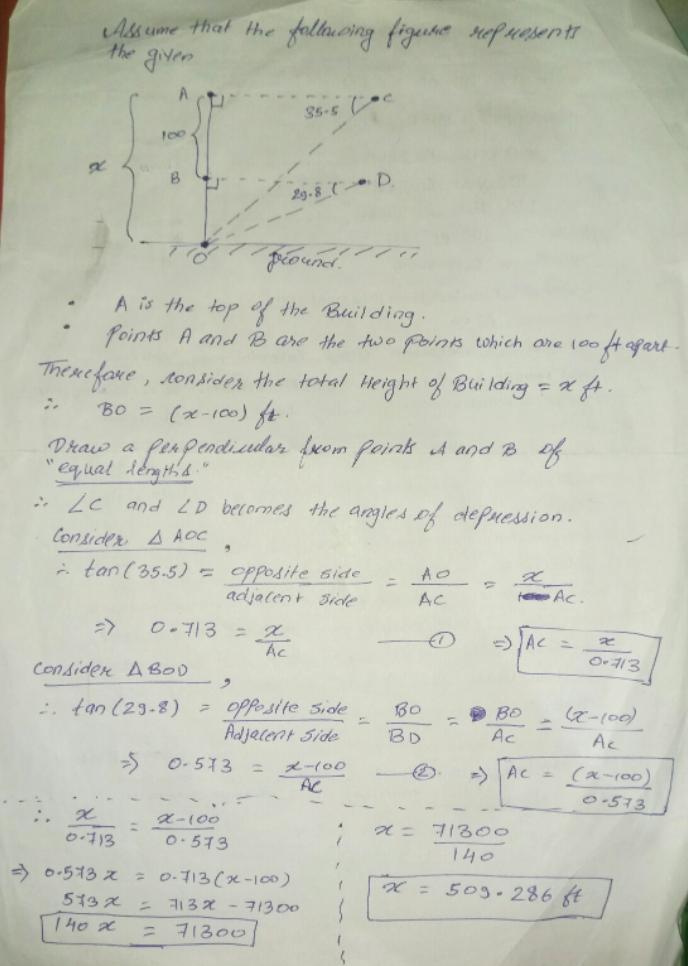 Assume that the following figure represents
the given
A
C
35.5
100
x
B
D.
29.8
O
ground.
• A is the top of the Building.
• Points A and B are the two points which are 100 ft apart.
Therefore, consider the total Height of Building = x ft.
∴ BO = (x-100) ft.
Draw a perpendicular from points A and B of
"equal lengths."
∴ ∠C and ∠D becomes the angles of depression.
Consider △ AOC,
∴ tan(35.5) = opposite side / adjacent side = AO / AC = x / AC.
⇒ 0.713 = x / AC —① ⇒ AC = x / 0.713
Consider △ BOD,
∴ tan(29.8) = opposite side / Adjacent side = BO / BD = BO / AC = (x-100) / AC
⇒ 0.573 = x-100 / AC —② ⇒ AC = (x-100) / 0.573
∴ x / 0.713 = x-100 / 0.573
⇒ 0.573x = 0.713(x-100)
573x = 713x - 71300
140x = 71300
x = 71300 / 140
x = 509.286 ft